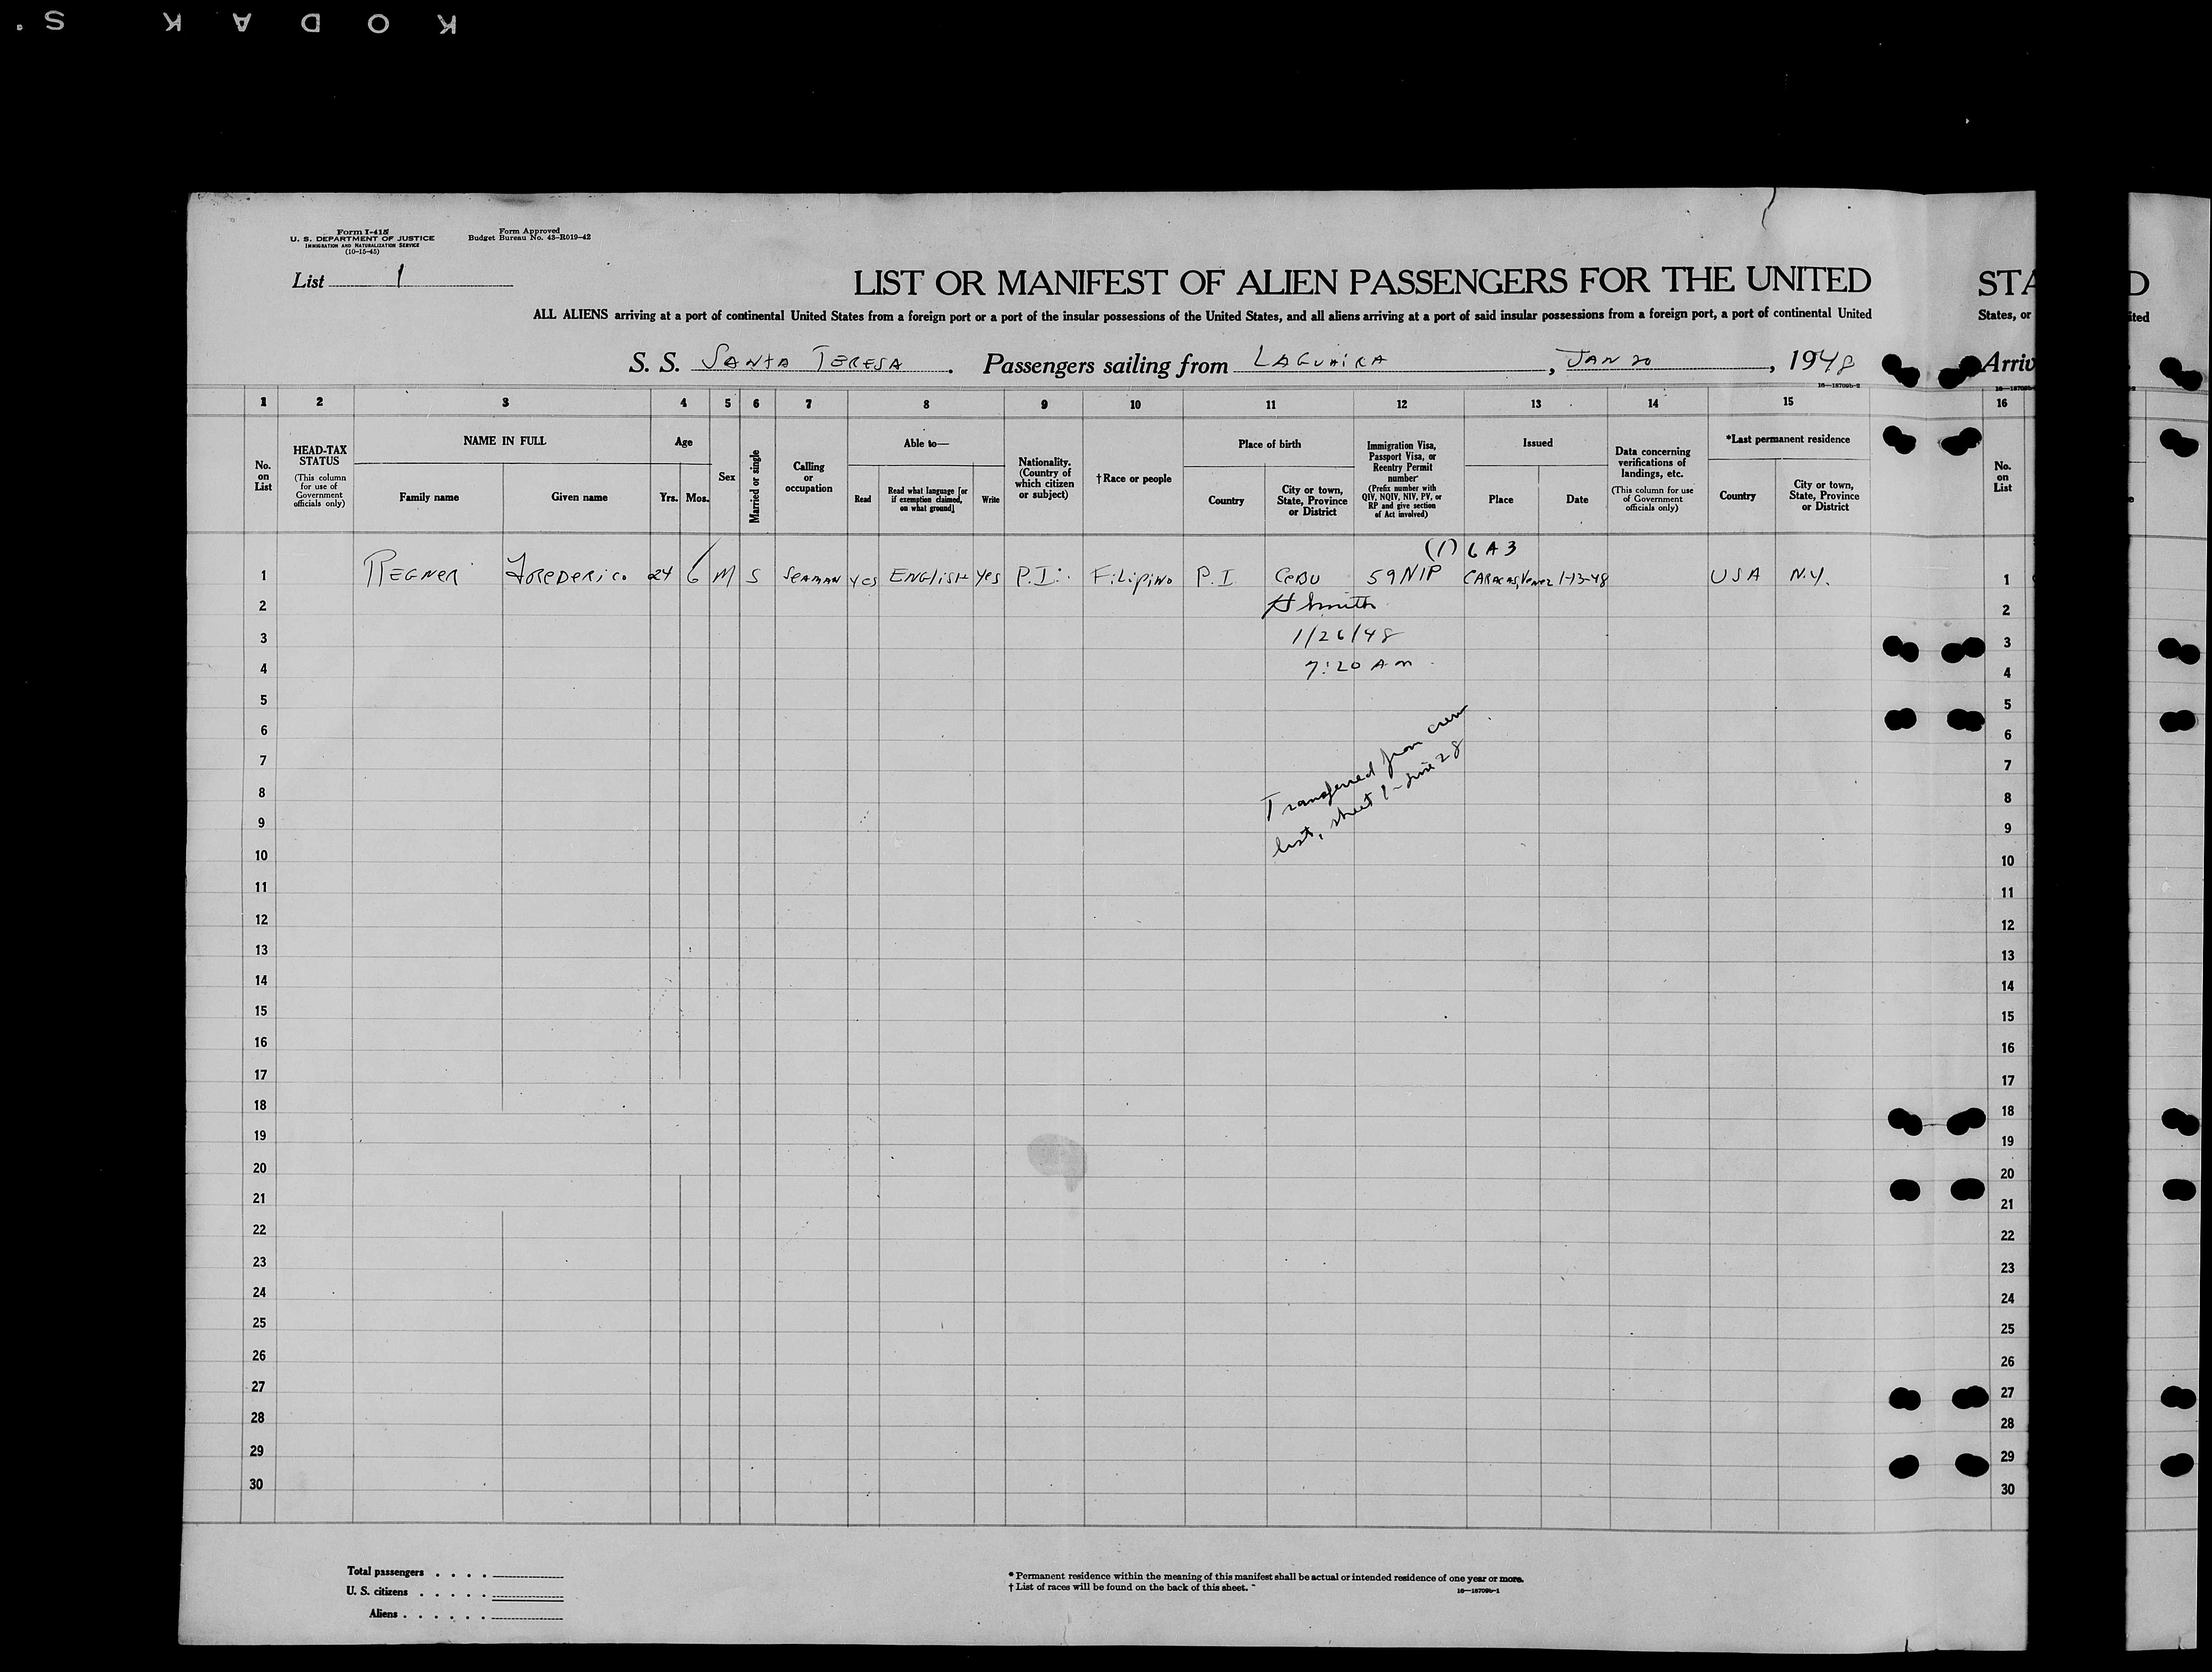 KODAK S.
Form I-415
U. S. DEPARTMENT OF JUSTICE
IMMIGRATION AND NATURALIZATION SERVICE
(10-15-45)
Form Approved
Budget Bureau No. 43-R019-42
List 1
LIST OR MANIFEST OF ALIEN PASSENGERS FOR THE UNITED STA D
ALL ALIENS arriving at a port of continental United States from a foreign port or a port of the insular possessions of the United States, and all aliens arriving at a port of said insular possessions from a foreign port, a port of continental United States, or ited
S. S. SANTA TERESA. Passengers sailing from LAGUAIRA, JAN 20, 1948 Arriv
16—18709b-2
1 2 3 4 5 6 7 8 9 10 11 12 13 14 15 16
No. on List
HEAD-TAX STATUS
(This column for use of Government officials only)
NAME IN FULL
Family name
Given name
Age
Yrs. Mos.
Sex
Married or single
Calling or occupation
Able to—
Read
Read what language [or if exemption claimed, on what ground]
Write
Nationality. (Country of which citizen or subject)
†Race or people
Place of birth
Country
City or town, State, Province or District
Immigration Visa, Passport Visa, or Reentry Permit number
(Prefix number with QIV, NQIV, NIV, PV, or RP and give section of Act involved)
Issued
Place
Date
Data concerning verifications of landings, etc.
(This column for use of Government officials only)
*Last permanent residence
Country
City or town, State, Province or District
No. on List
(1) 6 A 3
1 REGNER FREDERICO 24 6 M S SEAMAN yes ENGLISH yes P.I. FILIPINO P.I CEBU 59NIP CARACAS, Venez 1-13-48 USA N.Y. 1
2 H Smith 2
3 1/26/48 3
4 7:20 AM 4
5 5
6 6
7 7
8 8
9 9
Transferred from crew
list, sheet 1 - line 28
10 10
11 11
12 12
13 13
14 14
15 15
16 16
17 17
18 18
19 19
20 20
21 21
22 22
23 23
24 24
25 25
26 26
27 27
28 28
29 29
30 30
Total passengers . . . .
U. S. citizens . . . . .
Aliens . . . . . .
* Permanent residence within the meaning of this manifest shall be actual or intended residence of one year or more.
† List of races will be found on the back of this sheet.
16—18709b-1